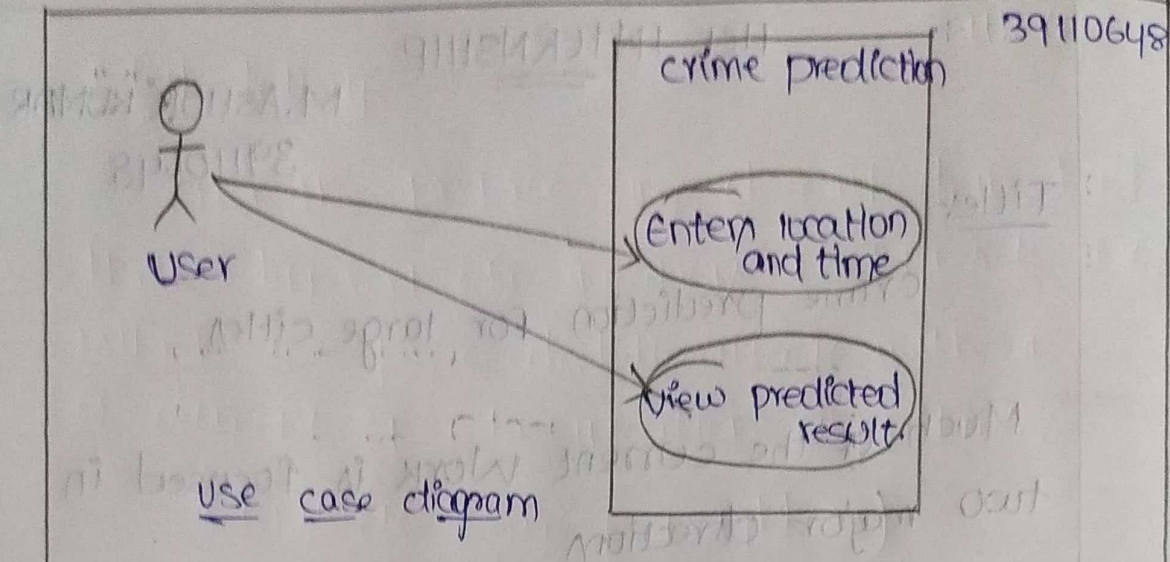 39110648
crime prediction
Enter location
and time
User
View predicted
result
use case diagram